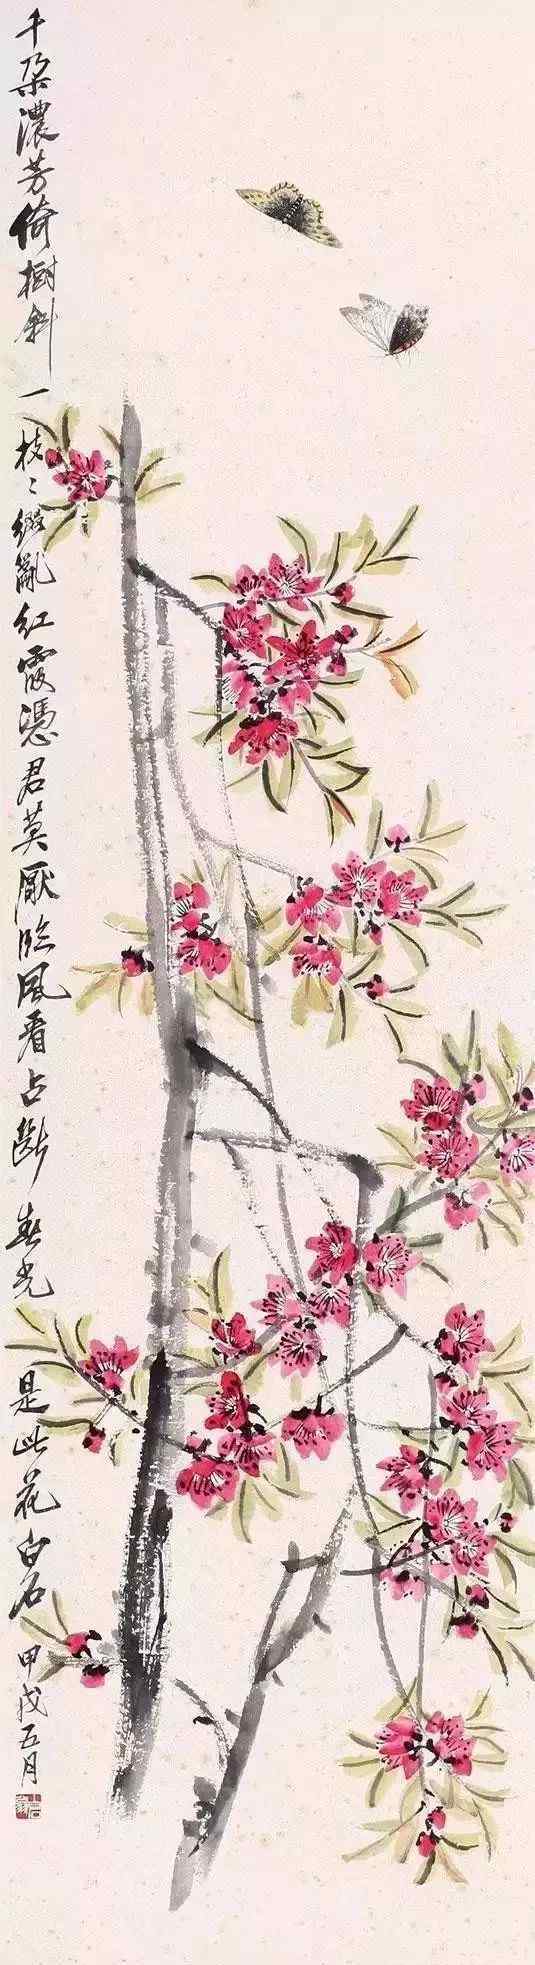 千朵濃芳倚樹斜一枝〻綴亂紅霞憑君莫厭臨風看占斷春光是此花白石甲戌五月